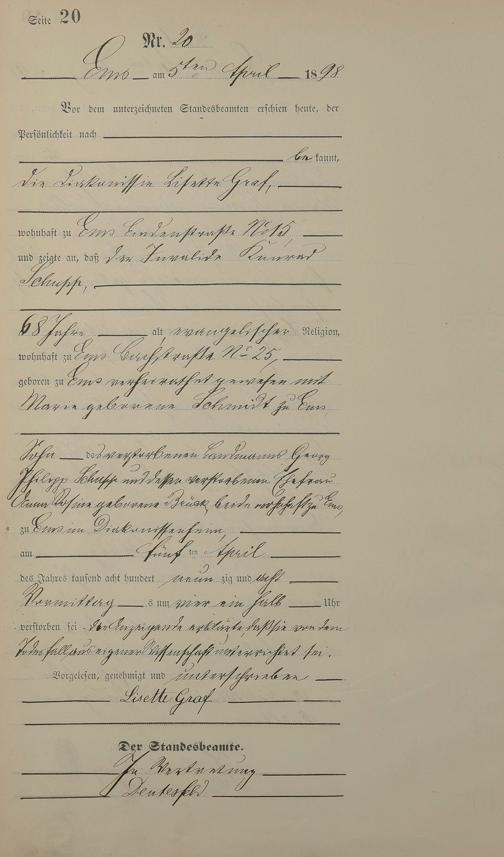 Seite 20
Nr. 20
Ems am 5ten April 1898
Vor dem unterzeichneten Standesbeamten erschien heute, der
Persönlichkeit nach
be kannt,
die Diakonissin Lisette Graf,
wohnhaft zu Ems Lindenstraße No 15,
und zeigte an, daß der Invalide Konrad
Schupp,
68 Jahre alt evangelischer Religion,
wohnhaft zu Ems Bachstraße No 25,
geboren zu Ems verheirathet gewesen mit
Marie geborene Schmidt zu Ems,
Sohn des verstorbenen Landmanns Georg
Philipp Schupp und dessen verstorbenen Ehefrau
Anna geborene Brück, beide wohnhaft zu Ems,
zu Ems im Diakonissenheim,
am fünf ten April
des Jahres tausend acht hundert neun zig und acht
Vormittag s um vier ein halb Uhr
verstorben sei. Die Anzeigende erklärte daß sie von dem
Todesfall aus eigener Wissenschaft unterrichtet sei.
Vorgelesen, genehmigt und unterschrieben
Lisette Graf
Der Standesbeamte.
In Vertretung